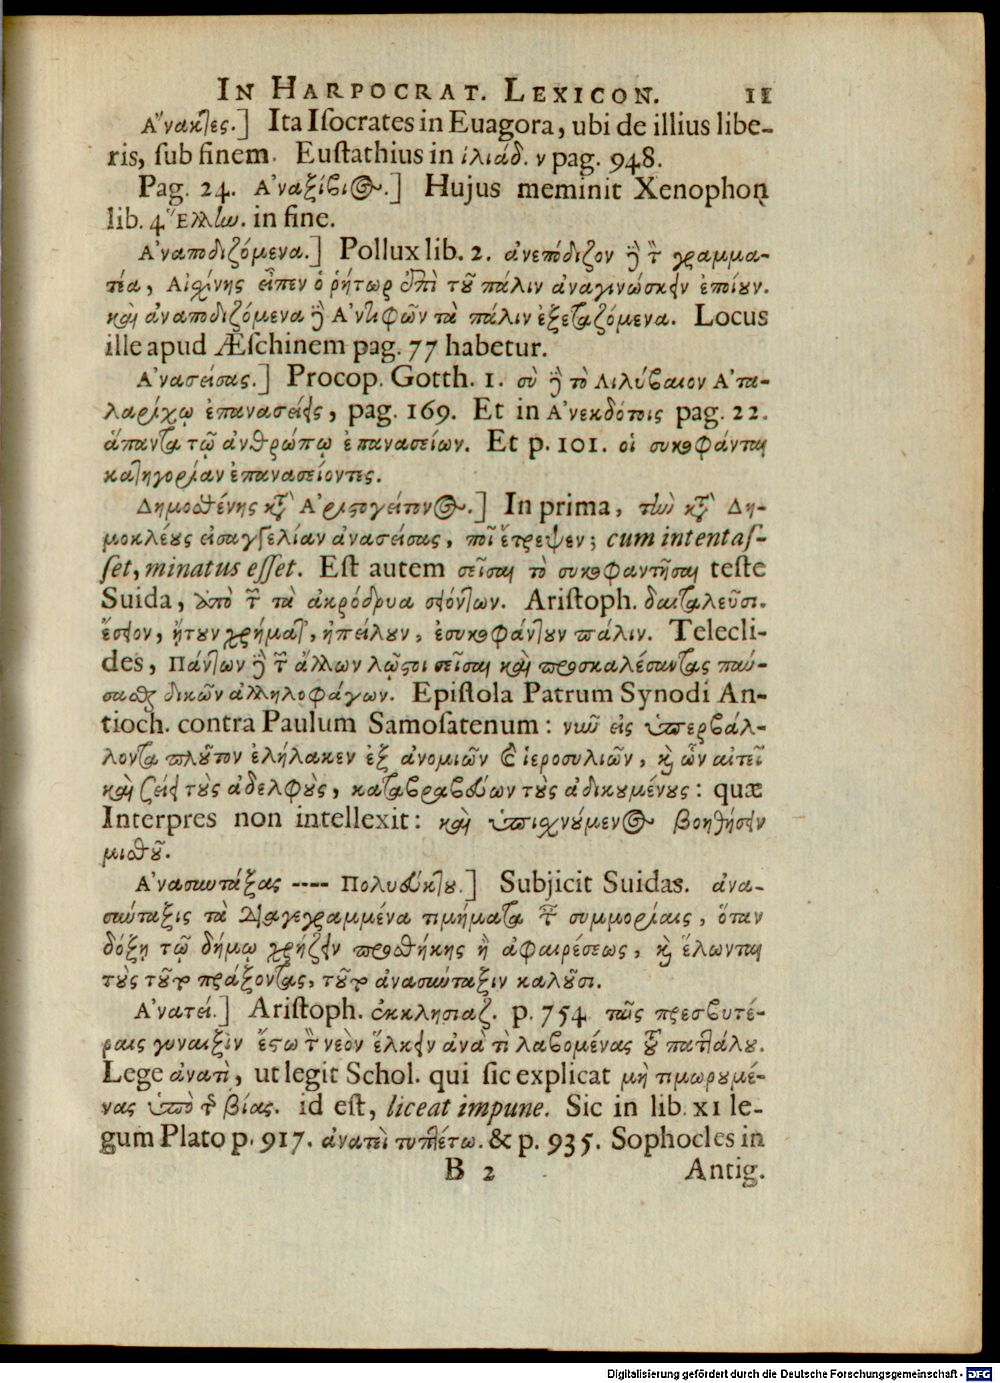 IN HARPOCRAT. LEXICON. 11
Ἄνακτες.] Ita Isocrates in Euagora, ubi de illius libe-
ris, sub finem. Eustathius in ἰλιάδ. ν pag. 948.
Pag. 24. Ἀναξίβιος.] Hujus meminit Xenophon
lib. 4 Ἑλλίω. in fine.
Ἀναποδιζόμενα.] Pollux lib. 2. ἀνεπόδιζον ἢ τ γραμμα-
τέα, Αἰχίνης εἶπεν ὁ ῥήτωρ ἐπὶ τοῦ πάλιν ἀναγινώσκειν ἐποίουν.
καὶ ἀναποδιζόμενα ἢ Ἀντιφῶν τὰ πάλιν ἐξεταζόμενα. Locus
ille apud Æschinem pag. 77 habetur.
Ἀνασείσας.] Procop. Gotth. 1. σὺ ἢ τὸ Λιλύβαιον Ἀτα-
λαρίχῳ ἐπανασείεις, pag. 169. Et in Ἀνεκδότοις pag. 22.
ἅπαντα τῷ ἀνθρώπῳ ἐπανασείων. Et p. 101. οἱ συκοφάνται
κατηγορίαν ἐπανασείοντες.
Δημοσθένης κατ' Ἀριστογείτονος.] In prima, τὴν κατὰ Δη-
μοκλέους εἰσαγγελίαν ἀνασείσας, ποῖ ἔτρεψεν; cum intentas-
set, minatus esset. Est autem σεῖσαι τὸ συκοφαντῆσαι teste
Suida, ἀπὸ τ τὰ ἀκρόδρυα σειόντων. Aristoph. δαιταλεῦσι.
ἔσειον, ᾔτουν χρήματ', ἠπείλουν, ἐσυκοφάντουν πάλιν. Telecli-
des, Πάντων ἢ τ ἄλλων λῷστοι σεῖσαι καὶ προσκαλέσαντας παύ-
σασθ δικῶν ἀλληλοφάγων. Epistola Patrum Synodi An-
tioch. contra Paulum Samosatenum: νυνὶ εἰς ὑπερβάλ-
λοντα πλοῦτον ἐλήλακεν ἐξ ἀνομιῶν καὶ ἱεροσυλιῶν, καὶ ὧν αἰτεῖ
καὶ σείει τοὺς ἀδελφοὺς, καταβραβεύων τοὺς ἀδικουμένους: quæ
Interpres non intellexit: καὶ ὑπισχνούμενος βοηθήσειν
μισθοῦ.
Ἀνασυντάξας ---- Πολυεύκτου.] Subjicit Suidas. ἀνα-
σύνταξις τὰ διαγεγραμμένα τιμήματα τ συμμορίαις, ὅταν
δόξῃ τῷ δήμῳ χρῄζειν προσθήκης ἢ ἀφαιρέσεως, καὶ ἕλωνται
τοὺς τοῦτο πράξοντας, τοῦτο ἀνασύνταξιν καλοῦσι.
Ἀνατεί.] Aristoph. ἐκκλησιαζ. p. 754 ταῖς πρεσβυτέ-
ραις γυναιξὶν ἔστω τ νεὸν ἕλκειν ἀνὰ τὶ λαβομένας τοῦ παττάλου.
Lege ἀνατὶ, ut legit Schol. qui sic explicat μὴ τιμωρουμέ-
νας ὑπὸ τ βίας. id est, liceat impune. Sic in lib. XI le-
gum Plato p. 917. ἀνατεὶ τυπτέτω. & p. 935. Sophocles in
B 2 Antig.
Digitalisierung gefördert durch die Deutsche Forschungsgemeinschaft - DFG